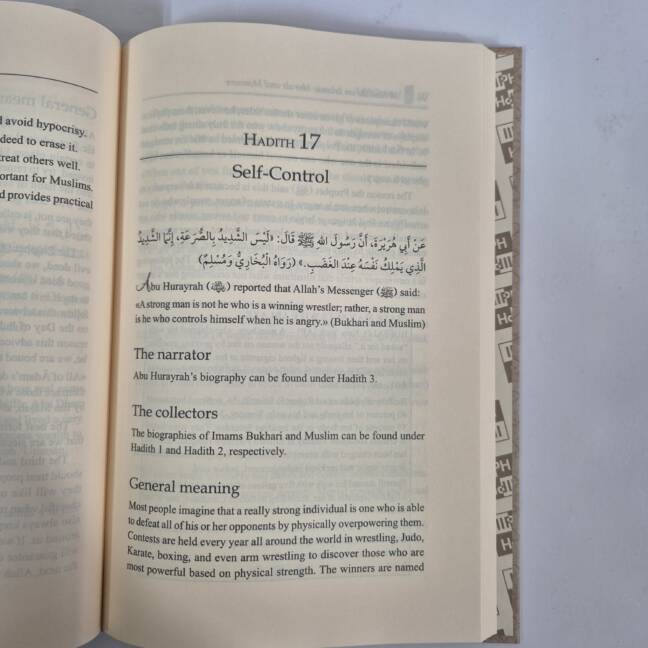 avoid hypocrisy.
deed to erase it.
treat others well.
ortant for Muslims.
d provides practical
HADITH 17
Self-Control
عَنْ أَبِي هُرَيْرَةَ، أَنَّ رَسُولَ اللهِ ﷺ قَالَ: «لَيْسَ الشَّدِيدُ بِالصُّرَعَةِ، إِنَّمَا الشَّدِيدُ
الَّذِي يَمْلِكُ نَفْسَهُ عِنْدَ الْغَضَبِ.» (رَوَاهُ الْبُخَارِيُّ وَمُسْلِمٌ)
Abu Hurayrah (﵁) reported that Allah's Messenger (ﷺ) said:
«A strong man is not he who is a winning wrestler; rather, a strong man
is he who controls himself when he is angry.» (Bukhari and Muslim)
The narrator
Abu Hurayrah's biography can be found under Hadith 3.
The collectors
The biographies of Imams Bukhari and Muslim can be found under
Hadith 1 and Hadith 2, respectively.
General meaning
Most people imagine that a really strong individual is one who is able
to defeat all of his or her opponents by physically overpowering them.
Contests are held every year all around the world in wrestling, Judo,
Karate, boxing, and even arm wrestling to discover those who are
most powerful based on physical strength. The winners are named